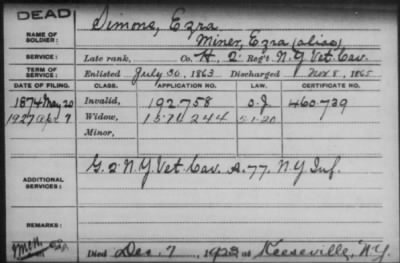 DEAD
NAME OF SOLDIER: Simons, Ezra
Miner, Ezra (alias)
SERVICE: Late rank, Co. H. 2 Reg't N.Y Vet. Cav.
TERM OF SERVICE: Enlisted July 30, 1863 Discharged Nov 8, 1865
DATE OF FILING. CLASS. APPLICATION NO. LAW. CERTIFICATE NO.
1874 May 20 Invalid, 192.758 460.739
1927 Apr 9 Widow, 1574244
Minor,
ADDITIONAL SERVICES: G. 2 N.Y. Vet. Cav. A. 77. N.Y Inf.
REMARKS:
Died Dec. 7, 1923 at Keeseville, N.Y.